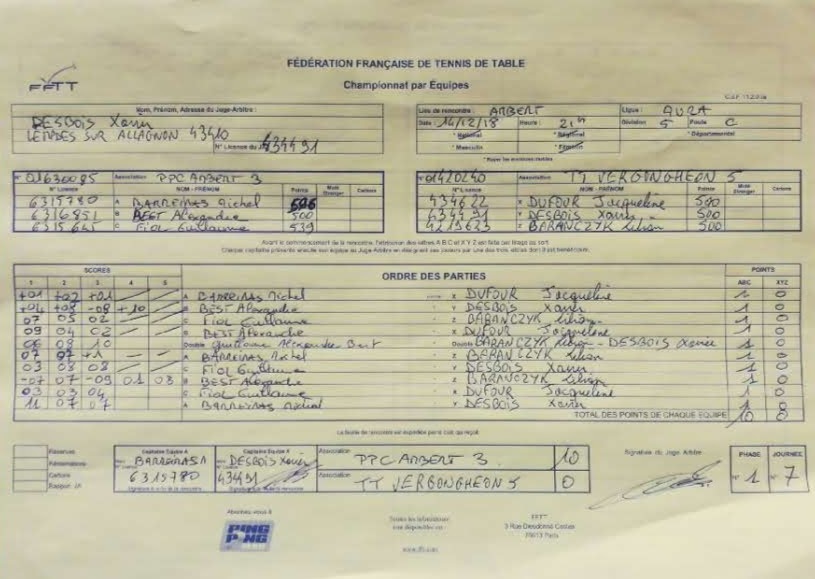 FÉDÉRATION FRANÇAISE DE TENNIS DE TABLE
FFTT
Championnat par Équipes
Nom, Prénom, Adresse du Juge-Arbitre :
DESBOIS Xavier
SUR ALLAGNON 43410
N° Licence du 434491
Lieu de rencontre : ARBERT Ligue : AURA
Date : 14/12/18 Heure : 21h Division 5 Poule C
* National * Régional * Départemental
* Masculin * Féminin
* Rayer les mentions inutiles
N° 01630085 Association PPC ARBERT 3
N° Licence NOM - PRÉNOM Points Muté Etranger Cartons
6315780 A BARREIRAS Michel
6316851 B BEST Alexandre 500
C FIOL Guillaume 539
N° 01430240 Association TT VERGONGHEON 5
N° Licence NOM - PRÉNOM Points Muté Etranger Cartons
434622 X DUFOUR Jacqueline 500
434491 Y DESBOIS Xavier 500
4219623 Z BARANCZYK Lilian 500
Avant le commencement de la rencontre, l'attribution des lettres A B C et X Y Z est faite par tirage au sort
SCORES ORDRE DES PARTIES POINTS
1 2 3 4 5 ABC XYZ
+01 +02 +01 A BARREIRAS Michel X DUFOUR Jacqueline 1 0
+04 +03 -08 +10 B BEST Alexandre Y DESBOIS Xavier 1 0
07 05 02 C FIOL Guillaume Z BARANCZYK Lilian 1 0
09 04 02 B BEST Alexandre X DUFOUR Jacqueline 1 0
06 08 10 Double Guillaume Alexandre Best Double BARANCZYK Lilian - DESBOIS Xavier 1 0
07 07 +1 A BARREIRAS Michel Z BARANCZYK Lilian 1 0
03 08 08 C FIOL Guillaume Y DESBOIS Xavier 1 0
-07 07 -09 01 08 B BEST Alexandre Z BARANCZYK Lilian 1 0
03 03 04 C FIOL Guillaume X DUFOUR Jacqueline 1 0
11 07 07 A BARREIRAS Michel Y DESBOIS Xavier 1 0
TOTAL DES POINTS DE CHAQUE ÉQUIPE 10 0
Réserves
Réclamations
Cartons
Rapport JA
Capitaine Équipe A
BARREIRAS
6315780
Capitaine Équipe X
DESBOIS Xavier
434491
Association PPC ARBERT 3 10
Association TT VERGONGHEON 5 0
Signature du Juge Arbitre
PHASE JOURNÉE
N° 1 N° 7
Abonnez-vous à
PING PONG
Toutes les informations
sont disponibles sur :
www.fftt.com
FFTT
3 Rue Dieudonné Costes
75013 Paris